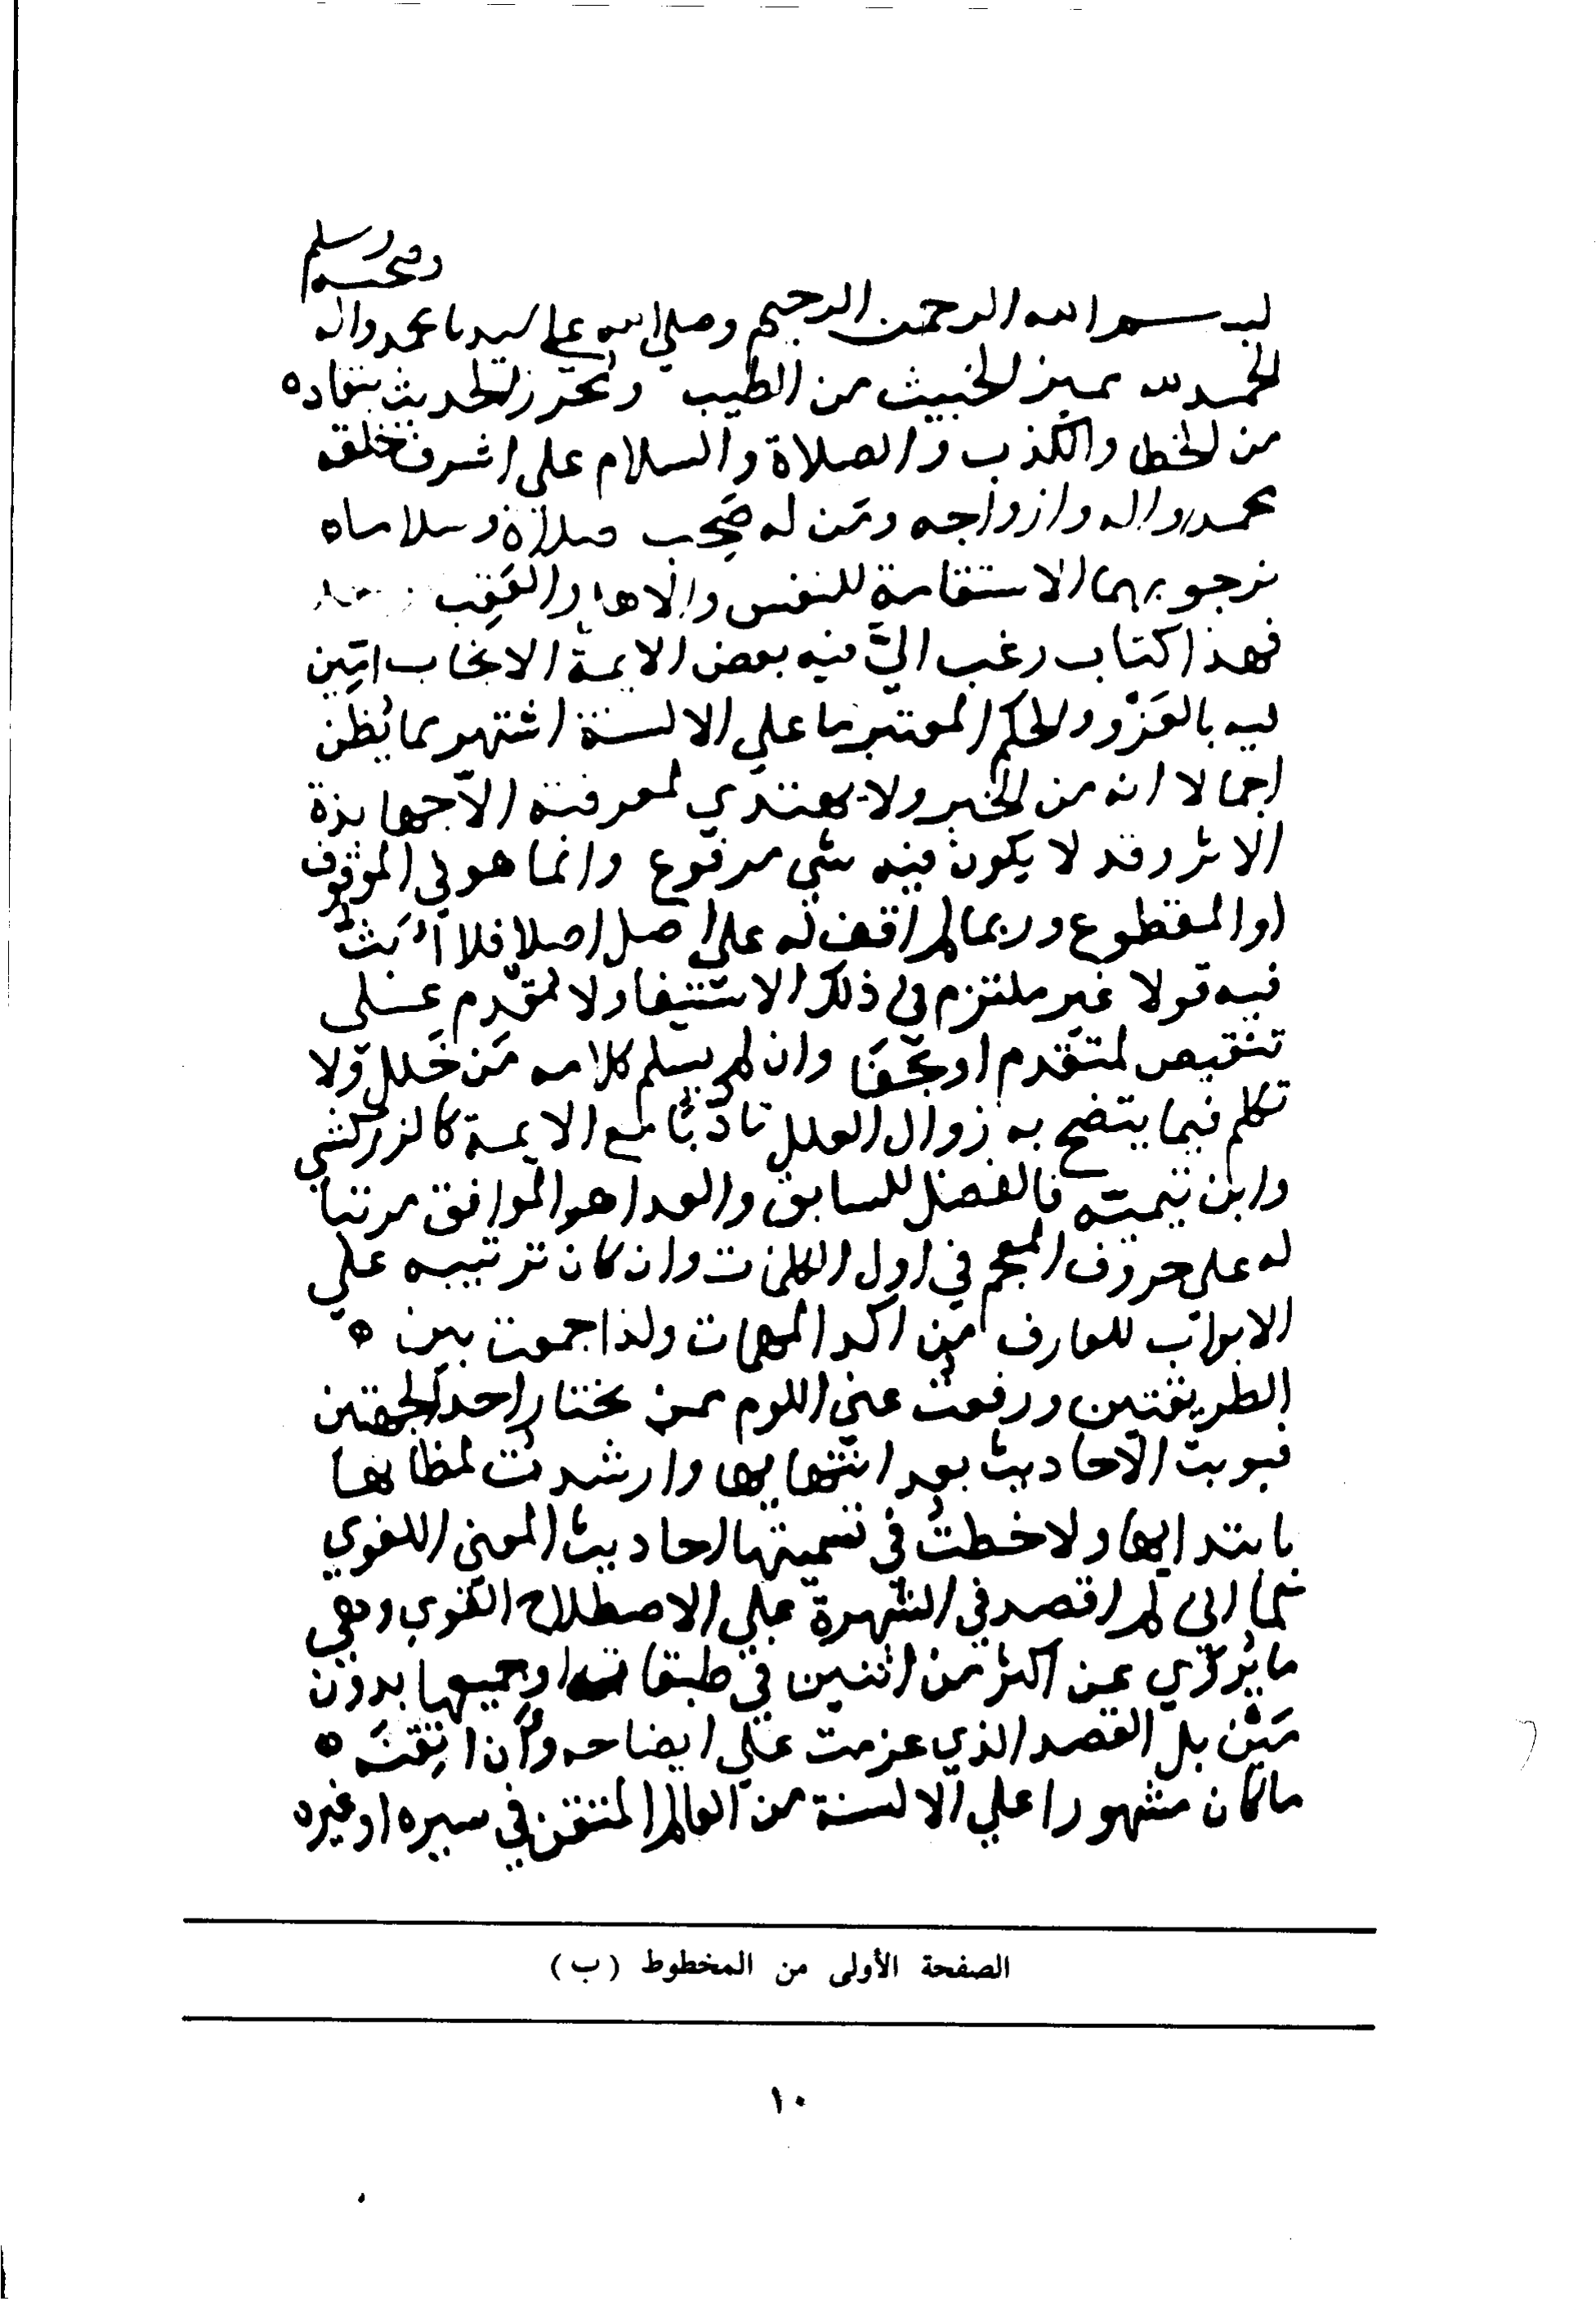 وصحبه وسلم
بسم الله الرحمن الرحيم وصلي الله علي سيدنا محمد واله
الحمد لله مميز الخبيث من الطيب ومحرز الحديث بنقاده
من الخطا والكذب والصلاة والسلام علي اشرف خلقه
محمد واله وازواجه ومَن له صَحِب صلاة وسلاما
نرجو بهما الاستقامة للنفس والاهل والعَقِب
فهذا كتاب رغب اليّ فيه بعض الايمة الانجاب ابين
فيه بالعَزْو والحكم المعتبر ما علي الالسنة اشتهر مما يُظن
اجمالا انه من الخبر ولا يهتدي لمعرفته الا جهابذة
الاثر وقد لا يكون فيه شي مرفوع وانما هو في الموقوف
او المقطوع وربما لم اقف له علي اصل اصلا فلا أَبُثُّ
فيه قولا غير ملتزم في ذلك الاستيفا ولا مُقْدِم عَلي
تنقيص لمتقدم او بجَفَا وان لم يسلم كلامه مَن خَلل ولا
تكلم فيما يتضح به زوال العلل تادّبًا مع الايمة كالزركشي
وابن تيمية فالفضل للسابق والعدا هو الموافق مرتبا
له علي حروف المعجم في اول الكلمات وان كان ترتيبه علي
الابواب للعارف من اكد المهمات ولذا جمعت بين
الطريقتين ورفعت عني اللوم ممن يختار احد الجهتين
فبوبت الاحاديث بعد انتهايها وارشدت لمظانها
بابتدايها ولاحظتُ في تسميتها احاديث المعني اللغوي
كما اني لم اقصد في الشهرة علي الاصطلاح القوي وهي
ما يُروَي عن اكثر من اثنين في طبقاته او جميعها بدون
مَيْن بل القصد الذي عزمت علي ايضاحه وان اتقنه
ما كان مشهورا علي الالسنة من العالم المتقن في سيره او غيره
الصفحة الأولى من المخطوط (ب)
١٠